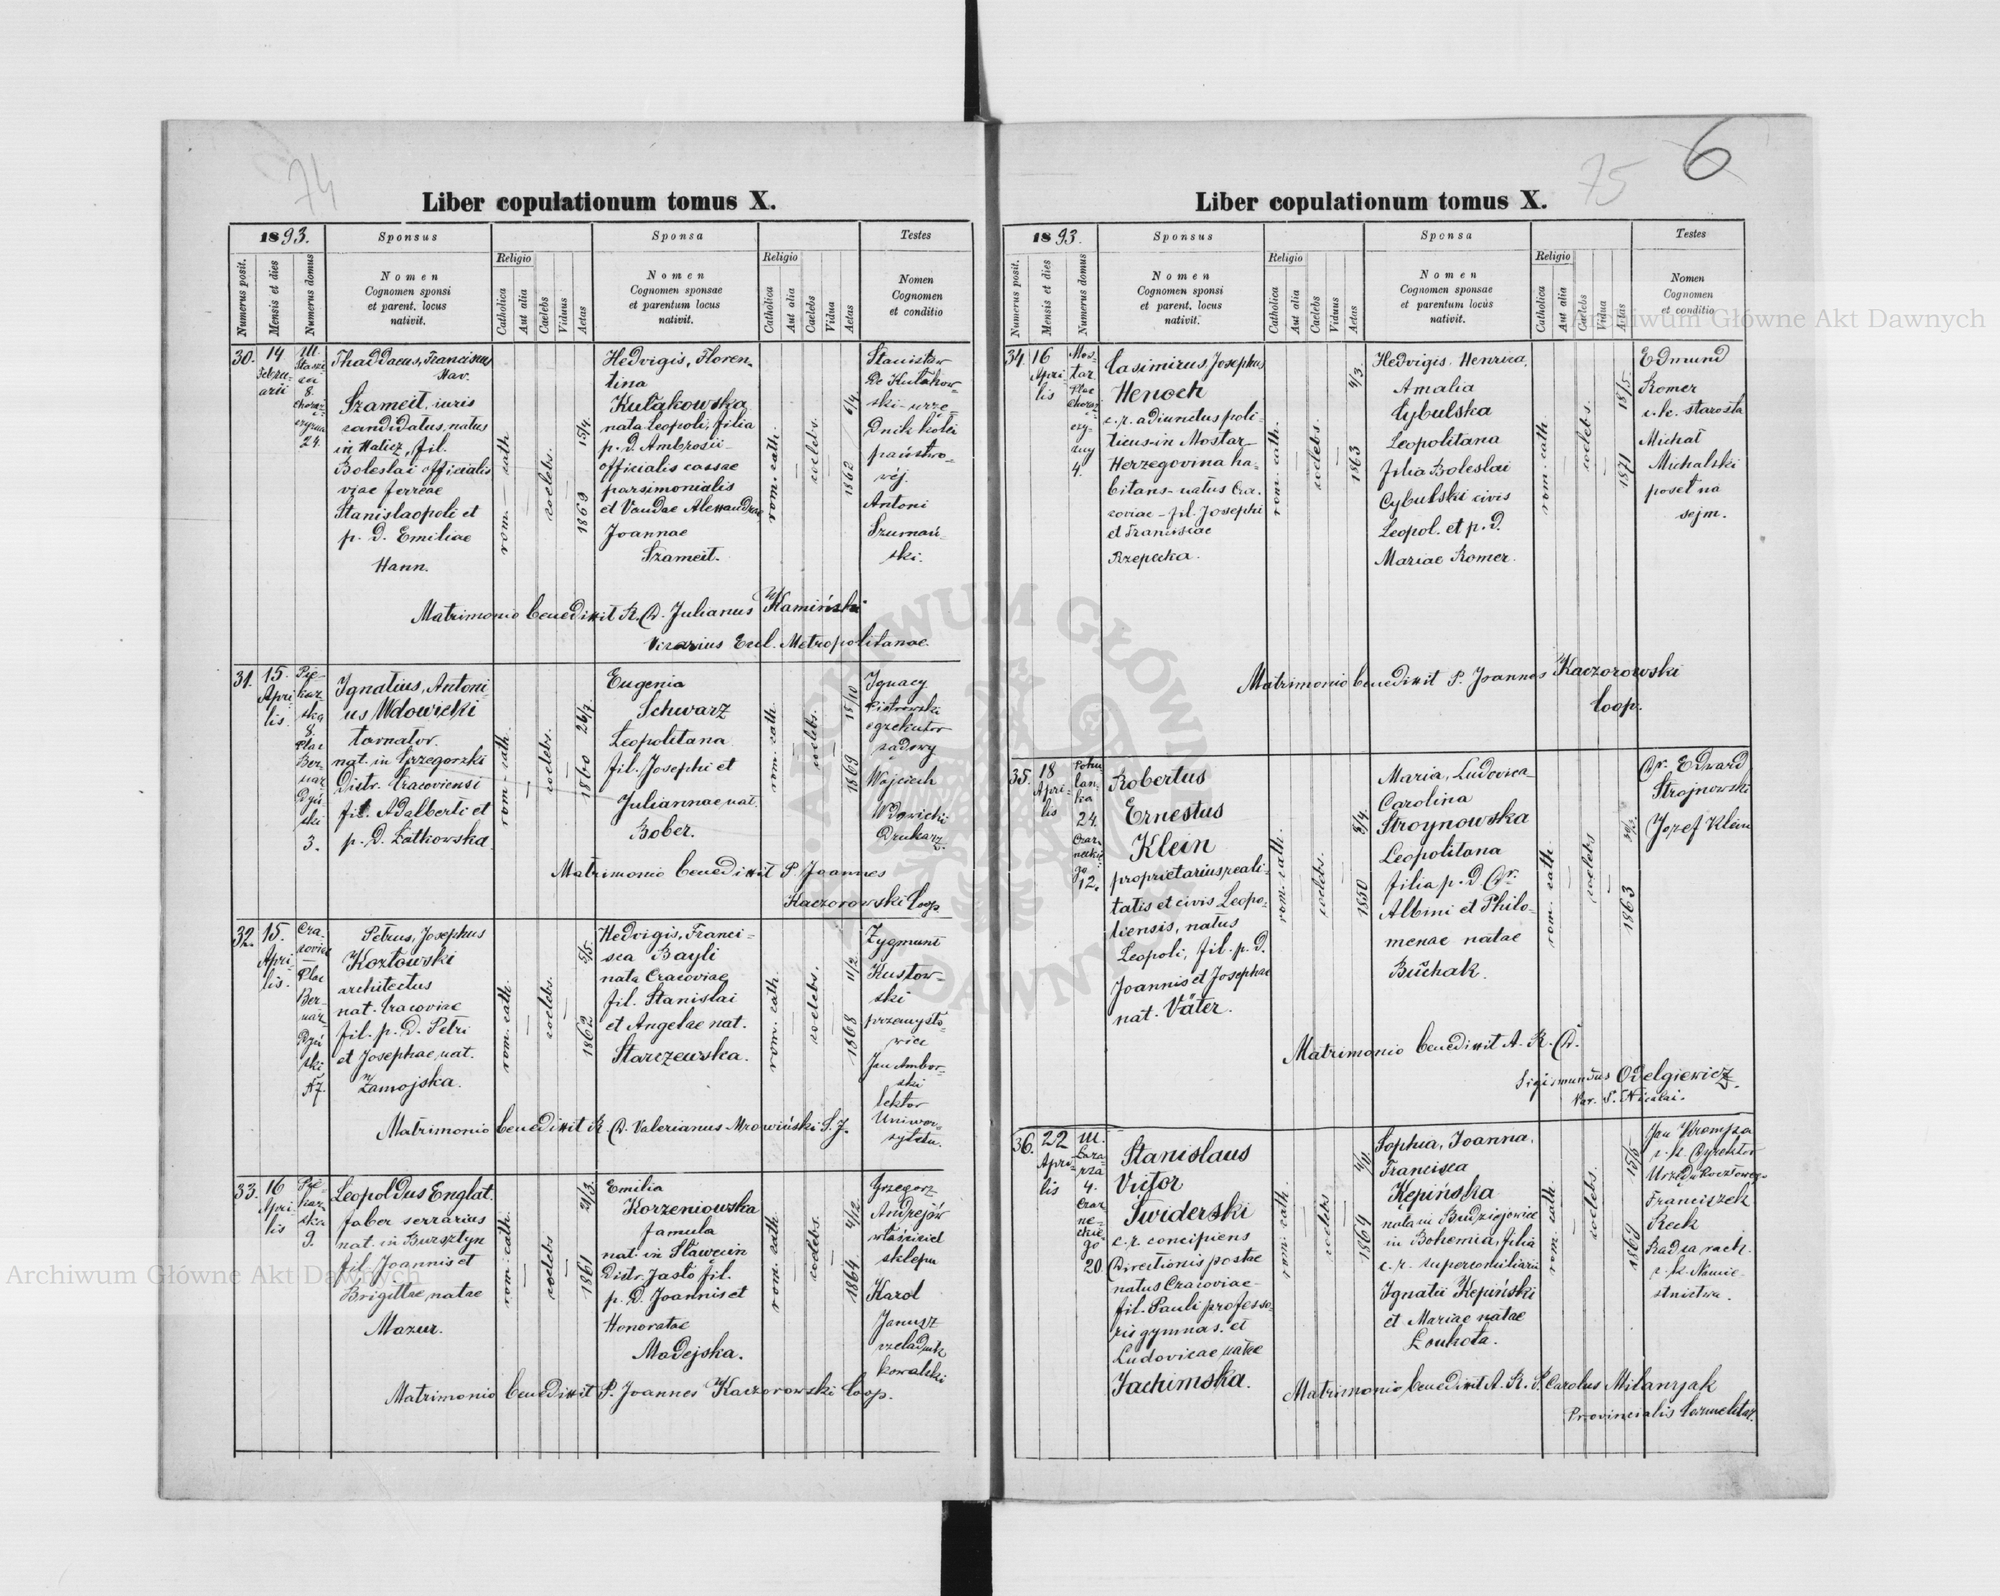 74
Liber copulationum tomus X.
1893.
Sponsus
Sponsa
Testes
Numerus posit.
Mensis et dies
Numerus domus
Nomen
Cognomen sponsi
et parent. locus
nativit.
Religio
Catholica
Aut alia
Caelebs
Viduus
Aetas
Nomen
Cognomen sponsae
et parentum locus
nativit.
Religio
Catholica
Aut alia
Caelebs
Vidua
Aetas
Nomen
Cognomen
et conditio
30.
14
Februarii
8.
24.
Thaddaeus, Franciscus
Szameit, iuris
candidatus, natus
in Halicz, fil.
Boleslai officialis
viae ferreae
Stanislaopoli et
p. D. Emiliae
Hann.
rom. cath
coelebs.
1869 15/4.
Hedvigis, Floren-
tina
Kułakowska
nata Leopoli, filia
p. D. Ambrosii
officialis cassae
parsimonialis
et Vandae Alexandrae
Joannae
Szameit.
rom. cath.
coelebs.
1862 6/4.
Stanisław
de Kułakow-
ski - urzę-
dnik kolei
państwo-
wéj.
Antoni
Szumań-
ski.
Matrimonio benedixit R. D. Julianus Kamiński
Vicarius Eccl. Metropolitanae.
31.
15.
Apri-
lis.
Pie-
kar-
ska
8.
Plac
Ber-
nar-
dyń-
ski
3.
Ignatius, Antoni-
us Wdowicki
tornator.
nat. in Grzegorzki
distr. Cracoviensi
fil. Adalberti et
p. D. Łatkowska.
rom. cath.
coelebs.
1860 26/7.
Eugenia
Schwarz
Leopolitana
fil. Josephi et
Juliannae nat.
Bober.
rom. cath.
coelebs.
1869 15/10
Ignacy
Piotrowski
egzekutor
sądowy
Wojciech
Wdowicki
Drukarz.
Matrimonio benedixit P. Joannes
Kaczorowski Coop.
32.
15.
Apri-
lis.
Cra-
coviae
Plac
Ber-
nar-
dyń
ski
Petrus, Josephus
Kozłowski
architectus
nat. Cracoviae
fil. p. D. Petri
et Josephae nat.
Zamojska.
rom. cath.
coelebs.
1862 5/5.
Hedvigis, Franci-
sca Bayli
nata Cracoviae
fil. Stanislai
et Angelae nat.
Starczewska.
rom. cath.
coelebs.
1868 11/2
Zygmunt
Kustow-
ski
przemysło-
wiec
Jan Ambor-
ski
lektor
Uniwer-
sytetu.
Matrimonio benedixit R. D. Valerianus Mrowiński S. J.
33.
16
Apri-
lis
Pie-
kar-
ska
9.
Leopoldus Englat.
faber serrarius
nat. in Bursztyn
fil. Joannis et
Brigittae natae
Mazur.
rom. cath.
coelebs
1861 21/3.
Emilia
Korzeniowska
famula
nat. in Sławęcin
Distr. Jasło fil.
p. D. Joannis et
Honoratae
Madejska.
rom. cath.
coelebs.
1864 4/12.
Grzegorz
Andrejów
właściciel
sklepu
Karol
Janusz
czeladnik
kowalski
Matrimonio benedixit P. Joannes Kaczorowski Coop.
6
75
Liber copulationum tomus X.
1893.
Sponsus
Sponsa
Testes
Numerus posit.
Mensis et dies
Numerus domus
Nomen
Cognomen sponsi
et parent. locus
nativit.
Religio
Catholica
Aut alia
Caelebs
Viduus
Aetas
Nomen
Cognomen sponsae
et parentum locus
nativit.
Religio
Catholica
Aut alia
Caelebs
Vidua
Aetas
Nomen
Cognomen
et conditio
34.
16
Apri-
lis
Mos-
tar
Plac
4.
Casimirus Josephus
Henoch
c. r. adiunctus poli-
ticus in Mostar
Herzegovina ha-
bitans - natus Cra-
coviae - fil. Josephi
et Franciscae
Rzepecka.
rom. cath.
coelebs.
1863 4/3.
Hedvigis, Henrica,
Amalia
Cybulska
Leopolitana
filia Boleslai
Cybulski civis
Leopol. et p. D.
Mariae Romer.
rom. cath.
coelebs.
1871 18/5.
Edmund
Romer
c. k. starosta
Michał
Michalski
poseł na
sejm.
Matrimonio benedixit P. Joannes Kaczorowski
Coop.
35.
18
Apri-
lis
Pohu
lan-
ka
24
Czar
neckie
go
12.
Robertus
Ernestus
Klein
proprietarius reali-
tatis et civis Leopo-
liensis, natus
Leopoli, fil. p. D.
Joannis et Josephae
nat. Väter.
rom. cath.
coelebs.
1850 8/4.
Maria, Ludovica
Carolina
Stroynowska
Leopolitana
filia p. D. Dr.
Albini et Philo-
menae natae
Buchak.
rom. cath.
coelebs
1863
Dr. Edward
Strojnowski
Jozef Klein
Matrimonio benedixit A. R. D.
Sigismundus Odelgiewicz.
Par. S. Nicolai.
36.
22
Apri-
lis
4.
Czar
ne-
ckie
go
20.
Stanislaus
Victor
Świderski
c. r. concipiens
Directionis postae
natus Cracoviae
fil. Pauli professo-
ris gymnas. et
Ludovicae natae
Jachimska.
rom. cath.
coelebs
1864
Sophia, Joanna,
Francisca
Kępińska
nata in Budziejowice
in Bohemia, filia
c. r. superconsiliarii
Ignatii Kępiński
et Mariae natae
Louhota.
rom. cath.
coelebs.
1869 15/5
Jan
c. k. Dyrektor
Urzędu
Franciszek
Keck
Radca rach.
c. k. Namie-
stnictwa.
Matrimonio benedixit A. R. P. Carolus Milanyak
Provincialis Carmelitar.
Archiwum Główne Akt Dawnych
Archiwum Główne Akt Dawnych
ARCHIWUM GŁÓWNE AKT DAWNYCH